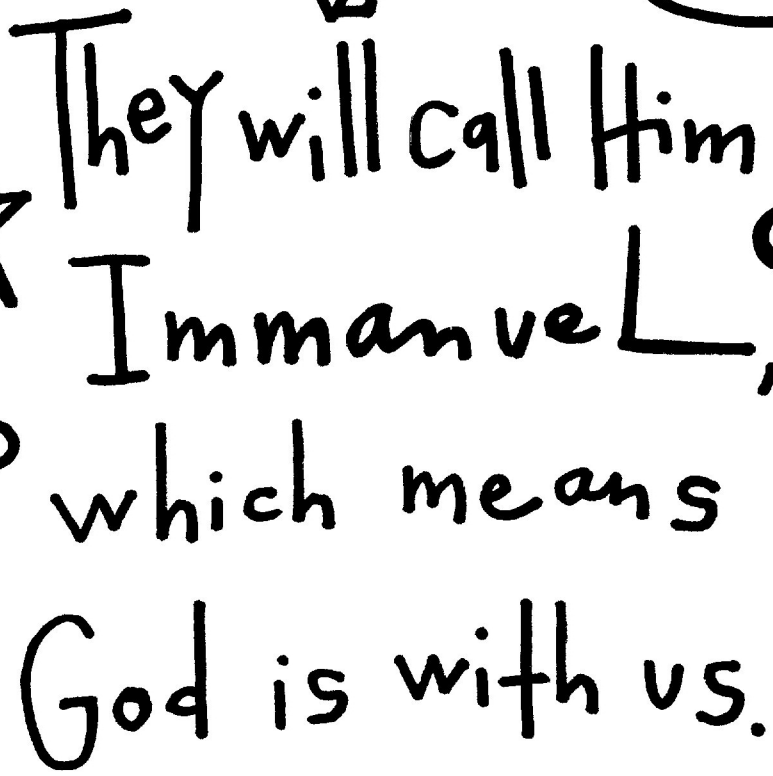 They will call Him
Immanuel,
which means
God is with us.